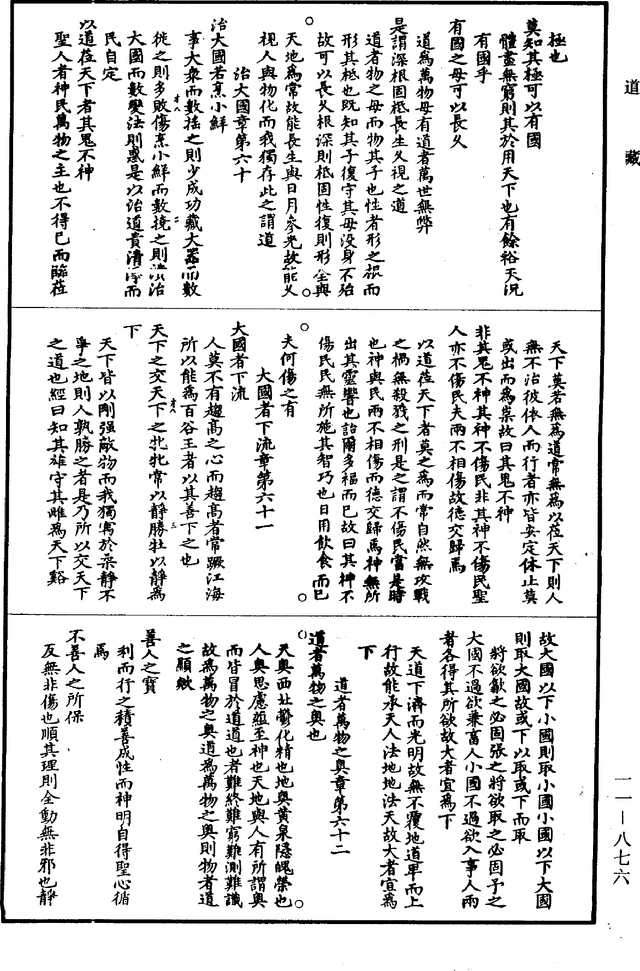 道藏
極也
莫知其極可以有國
體盡無窮則其於用天下也有餘裕天況
有國乎
有國之母可以長久
道為萬物母有道者萬世無弊
是謂深根固柢長生久視之道
道者物之母而物其子也性者形之根而
形其柢也既知其子復守其母没身不殆
故可以長久根深則柢固性復則形全與
天地為常故能長生與日月參光故能久
視人與物化而我獨存此之謂道
治大國章第六十
治大國若烹小鮮
事大衆而數搖之則少成功藏大器而數
徙之則多敗傷烹小鮮而數撓之則潰治
大國而數變法則惑是以治道貴清淨而
民自定
以道莅天下者其鬼不神
聖人者神民萬物之主也不得已而臨莅
天下莫若無為道常無為以莅天下則人
無不治彼依人而行者亦皆安定休止莫
或出而為祟故曰其鬼不神
非其鬼不神其神不傷民非其神不傷民聖
人亦不傷民夫兩不相傷故德交歸焉
以道莅天下者莫之為而常自然無攻戰
之禍無殺戮之刑是之謂不傷民當是時
也神與民兩不相傷而德交歸焉神無所
出其靈響也詒爾多福而已故曰其神不
傷民民無所施其智巧也日用飲食而已
夫何傷之有
大國者下流章第六十一
大國者下流
人莫不有趨高之心而趨高者常蹶江海
所以能為百谷王者以其善下之也
天下之交天下之牝牝常以靜勝牡以靜為
下
天下皆以剛强敵物而我獨寓於柔靜不
爭之地則人孰勝之者是乃所以交天下
之道也經曰知其雄守其雌為天下谿
故大國以下小國則取小國小國以下大國
則取大國故或下以取或下而取
將欲歙之必固張之將欲取之必固予之
大國不過欲兼畜人小國不過欲入事人兩
者各得其所欲故大者宜為下
天道下濟而光明故無不覆地道卑而上
行故能承天人法地地法天故大者宜為
下
道者萬物之奥章第六十二
道者萬物之奥也
天奥西北鬱化精也地奥黄泉隱魄榮也
人奥思慮蘊至神也天地與人有所謂奥
而皆冒於道道也者難終難窮難測難識
故為萬物之奥道為萬物之奥則物者道
之顯歟
善人之寶
利而行之積善成性而神明自得聖心循
焉
不善人之所保
反無非傷也順其理則全動無非邪也靜
一一―八七六